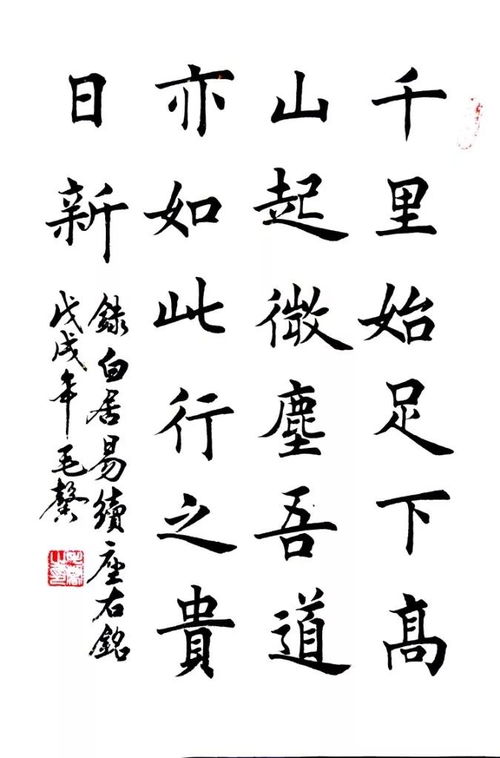 千里始足下高
山起微塵吾道
亦如此行之貴
日新
錄白居易續座右銘
戊戌年毛馨